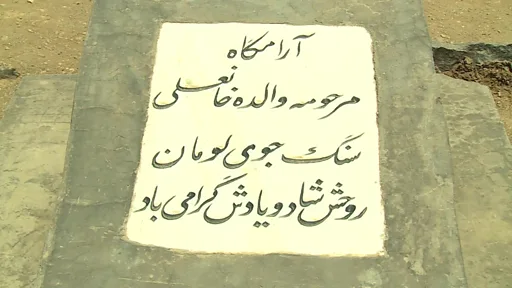 آرامگاه
مرحومه والده خانعلی
سنگ جوی لومان
روحش شاد و یادش گرامی باد